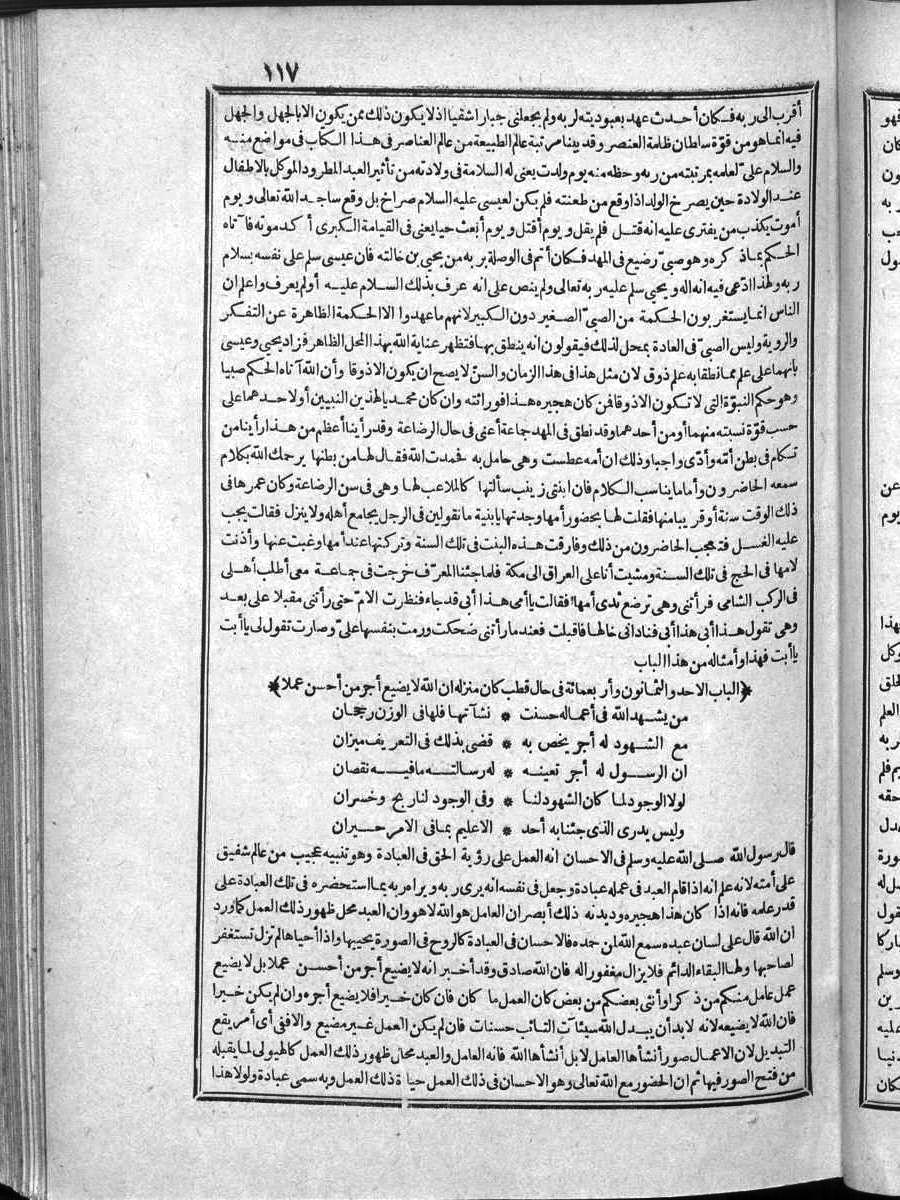 ١١٧
أقرب الى ربه فكان أحدث عهد بعبوديته لربه ولم يجعلنى جبارا شقيا اذ لا يكون ذلك ممن يكون الا بالجهل والجهل
فيه انما هو من قوّة سلطان ظلمة العنصر وقد بينا مرتبة عالم الطبيعة من عالم العناصر فى هذا الكتاب فى مواضع منه
والسلام علىّ لعلمه بمرتبته من ربه وحظه منه يوم ولدت يعنى له السلامة فى ولادته من تأثير العبد المطرود الموكل بالاطفال
عند الولادة حين يصرخ الولد اذا وقع من طعنته فلم يكن لعيسى عليه السلام صراخ بل وقع ساجد الله تعالى ويوم
أموت يكذب من يفترى عليه انه قتل فلم يقل ويوم أقتل ويوم أبعث حيا يعنى فى القيامة الكبرى أكد موته فا آتاه
الحكم بما ذكره وهو صبىّ رضيع فى المهد فكان أتم فى الوصلة بربه من يحيى بن خالته فان عيسى سلم على نفسه بسلام
ربه ولهذا ادّعى فيه انه اله ويحيى سلم عليه ربه تعالى ولم ينص على انه عرف بذلك السلام عليه أولم يعرف واعلم ان
الناس انما يستغربون الحكمة من الصبىّ الصغير دون الكبير لانهم ما عهدوا الا الحكمة الظاهرة عن التفكر
والروية وليس الصبىّ فى العادة بمحل لذلك فيقولون انه ينطق بها فتظهر عناية الله بهذا المحل الظاهر فزاد يحيى وعيسى
بانهما على علم مما نطقا به علم ذوق لان مثل هذا فى هذا الزمان والسنّ لا يصح ان يكون الا ذوقا وأن الله آتاه الحكم صبيا
وهو حكم النبوّة التى لا تكون الا ذوقا فمن كان هجيره هذا فوراثته وان كان محمديا لهذين النبيين أو لاحدهما على
حسب قوّة نسبته منهما أو من أحدهما وقد نطق فى المهد جماعة أعنى فى حال الرضاعة وقد رأينا أعظم من هذا رأينا من
تكلم فى بطن أمّه وأدّى واجبا وذلك ان أمه عطست وهى حامل به فحمدت الله فقال لها من بطنها يرحمك الله بكلام
سمعه الحاضرون وأما ما يناسب الكلام فان ابنتى زينب سألتها كالملاعب لها وهى فى سن الرضاعة وكان عمرها فى
ذلك الوقت سنة أو قريبا منها فقلت لها بحضور أمها وجدتها يا بنية ما تقولين فى الرجل يجامع أهله ولا ينزل فقالت يجب
عليه الغسل فتعجب الحاضرون من ذلك وفارقت هذه البنت فى تلك السنة وتركتها عند أمها وغبت عنها وأذنت
لامها فى الحج فى تلك السنة ومشيت أنا على العراق الى مكة فلما جئنا المعرّف خرجت فى جماعة معى أطلب أهلى
فى الركب الشامى فرأتنى وهى ترضع ثدى أمها فقالت يا أمى هذا أبى قد جاء فنظرت الامّ حتى رأتنى مقبلا على بعد
وهى تقول هذا أبى هذا أبى فنادانى خالها فاقبلت فعندما رأتنى ضحكت ورمت بنفسها علىّ وصارت تقول لى يا أبت
يا أبت فهذا وأمثاله من هذا الباب
﴿الباب الاحد والثمانون وأربعمائة فى حال قطب كان منزله ان الله لا يضيع أجر من أحسن عملا﴾
من يشهد الله فى أعماله حسنت * نشآتها فلها فى الوزن رجحان
مع الشهود له أجر يخص به * قضى بذلك فى التعريف ميزان
ان الرسول له أجر تعينه * له رسالته ما فيه نقصان
لولا الوجود لما كان الشهود لنا * وفى الوجود لنا ربح وخسران
وليس يدرى الذى جئنا به أحد * الا عليم بما فى الامر حيران
قال رسول الله صلى الله عليه وسلم فى الاحسان انه العمل على رؤية الحق فى العبادة وهو تنبيه عجيب من عالم شفيق
على أمته لانه علم انه اذا قام العبد فى عمله عبادة وجعل فى نفسه انه يرى ربه ويراه ربه بما استحضره فى تلك العبادة على
قدر علمه فانه اذا كان هذا هجيره وديدنه ذلك أبصر ان العامل هو الله لا هو وان العبد محل ظهور ذلك العمل كما ورد
ان الله قال على لسان عبده سمع الله لمن حمده فالاحسان فى العبادة كالروح فى الصورة يحييها واذا أحياها لم تزل تستغفر
لصاحبها ولها البقاء الدائم فلا يزال مغفورا له فان الله صادق وقد أخبر انه لا يضيع أجر من أحسن عملا بل لا يضيع
عمل عامل منكم من ذكر أو أنثى بعضكم من بعض كان العمل ما كان فان كان خيرا فلا يضيع أجره وان لم يكن خيرا
فان الله لا يضيعه لانه لا بد أن يبدل الله سيئات التائب حسنات فان لم يكن العمل غير مضيع والا ففى أى أمر يقع
التبديل لان الاعمال صور أنشأها العامل لا بل أنشأها الله فانه العامل والعبد محل ظهور ذلك العمل كالهيولى لما يقبله
من فتح الصور فيها ثم ان الحضور مع الله تعالى وهو الاحسان فى ذلك العمل حياة ذلك العمل وبه سمى عبادة ولولا هذا